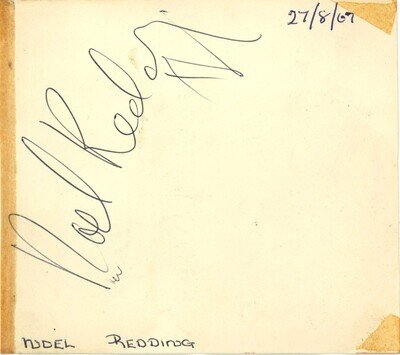 27/8/67
Noel Redding
NOEL REDDING